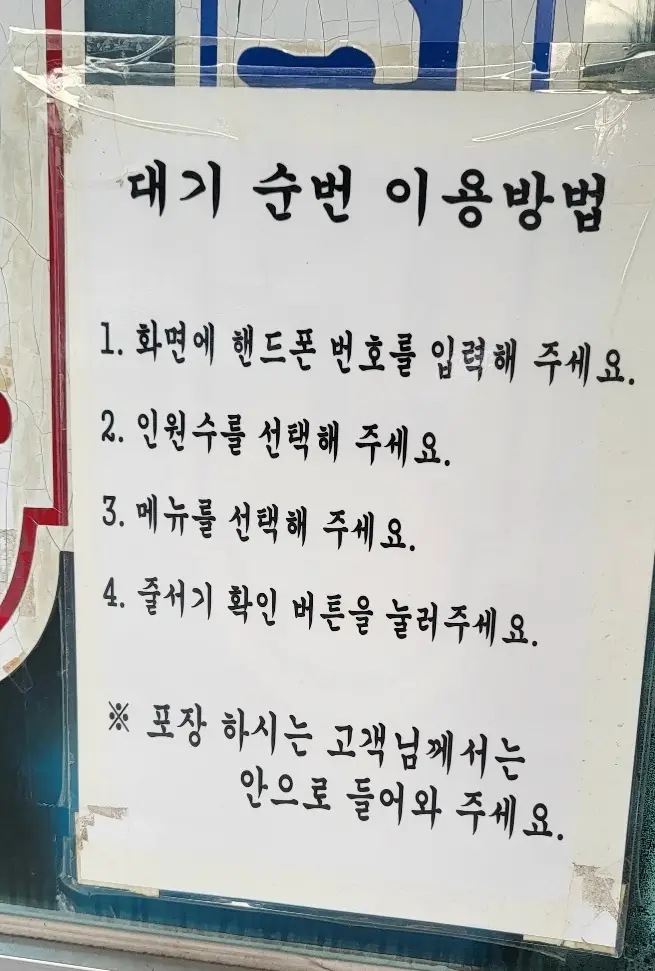 대기 순번 이용방법
1. 화면에 핸드폰 번호를 입력해 주세요.
2. 인원수를 선택해 주세요.
3. 메뉴를 선택해 주세요.
4. 줄서기 확인 버튼을 눌러주세요.
※ 포장 하시는 고객님께서는
안으로 들어와 주세요.